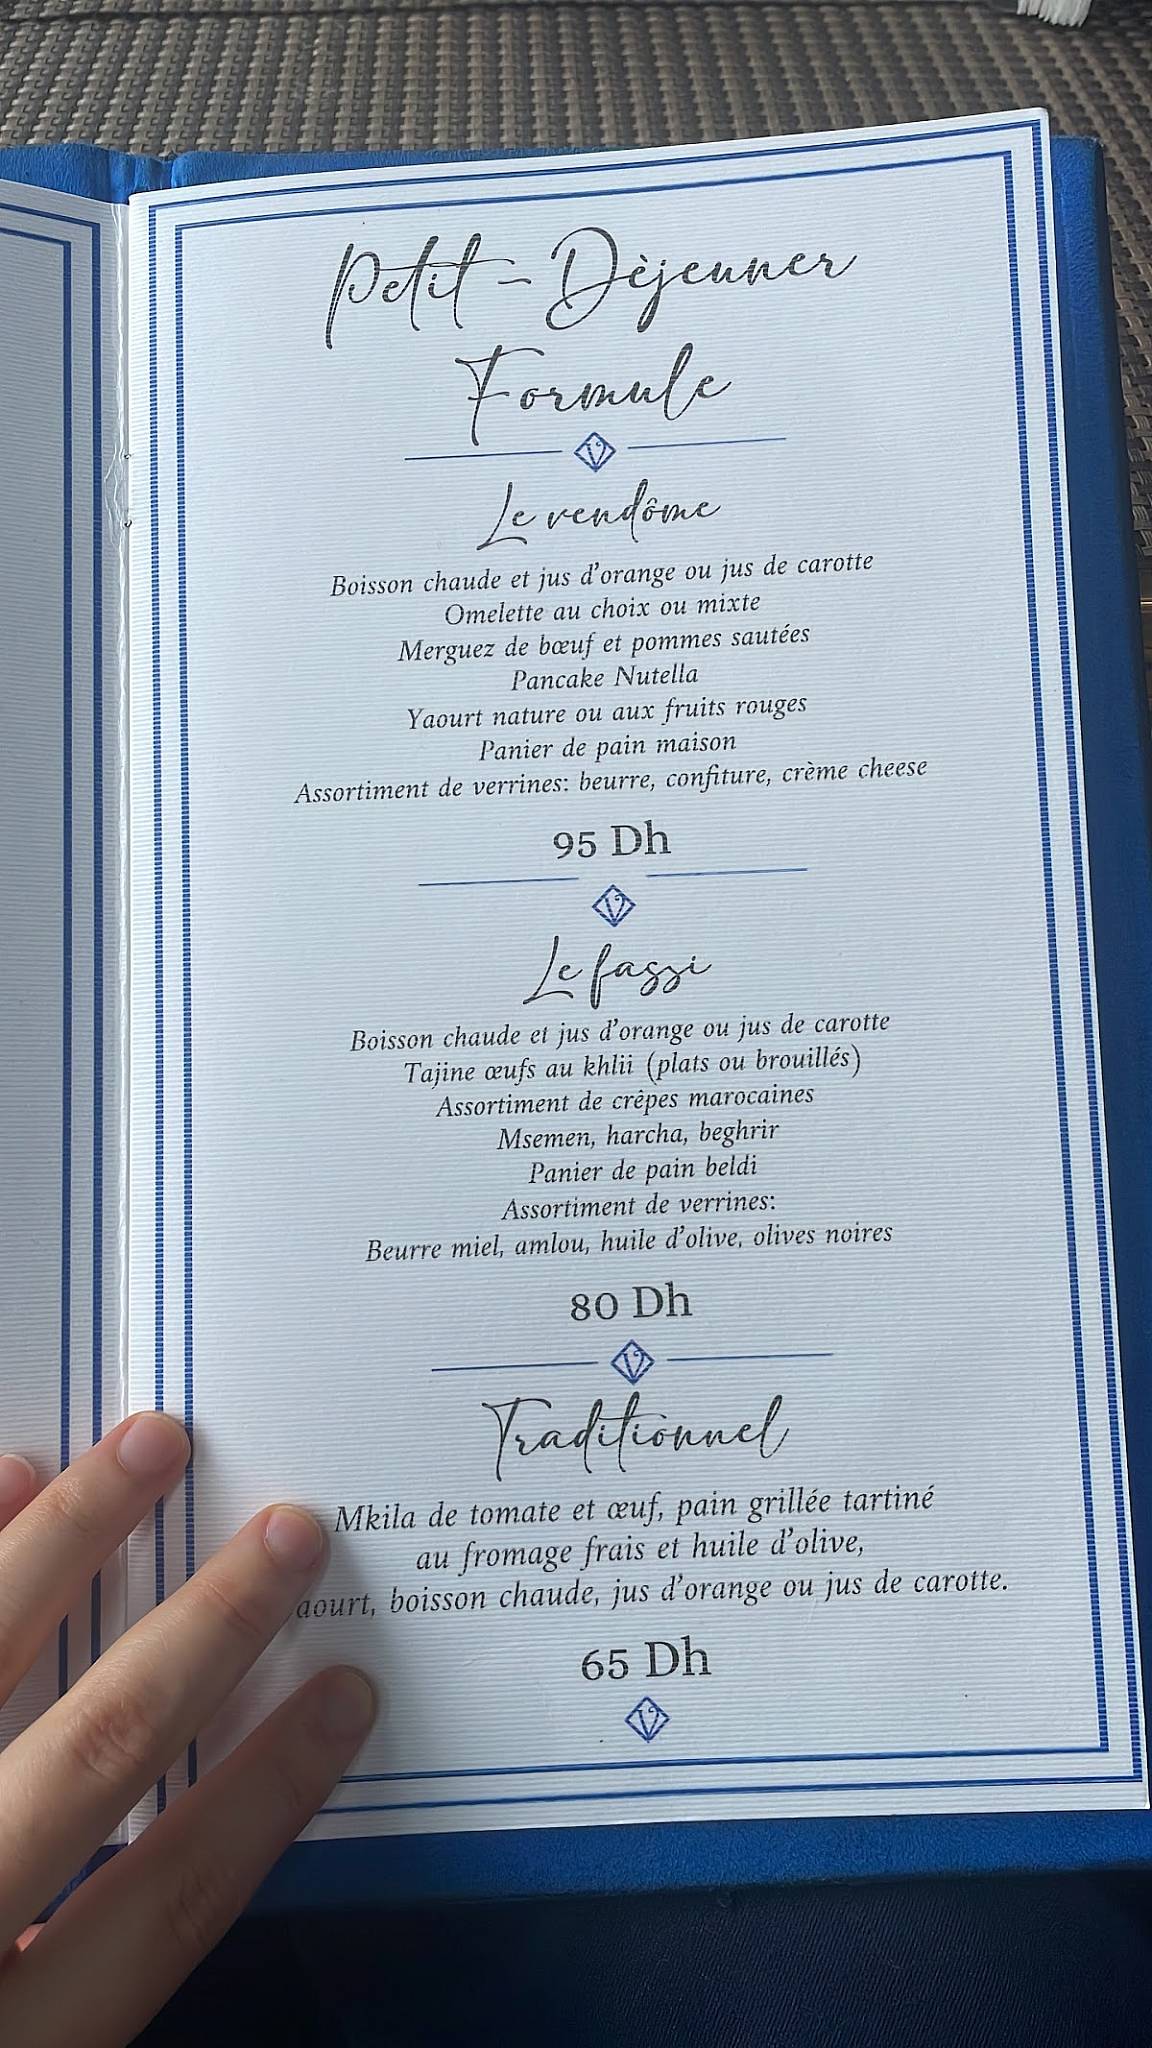 Petit-Dèjeuner
Formule
Le vendôme
Boisson chaude et jus d'orange ou jus de carotte
Omelette au choix ou mixte
Merguez de bœuf et pommes sautées
Pancake Nutella
Yaourt nature ou aux fruits rouges
Panier de pain maison
Assortiment de verrines: beurre, confiture, crème cheese
95 Dh
Le fassi
Boisson chaude et jus d'orange ou jus de carotte
Tajine œufs au khlii (plats ou brouillés)
Assortiment de crêpes marocaines
Msemen, harcha, beghrir
Panier de pain beldi
Assortiment de verrines:
Beurre miel, amlou, huile d'olive, olives noires
80 Dh
Traditionnel
Mkila de tomate et œuf, pain grillée tartiné
au fromage frais et huile d'olive,
aourt, boisson chaude, jus d'orange ou jus de carotte.
65 Dh